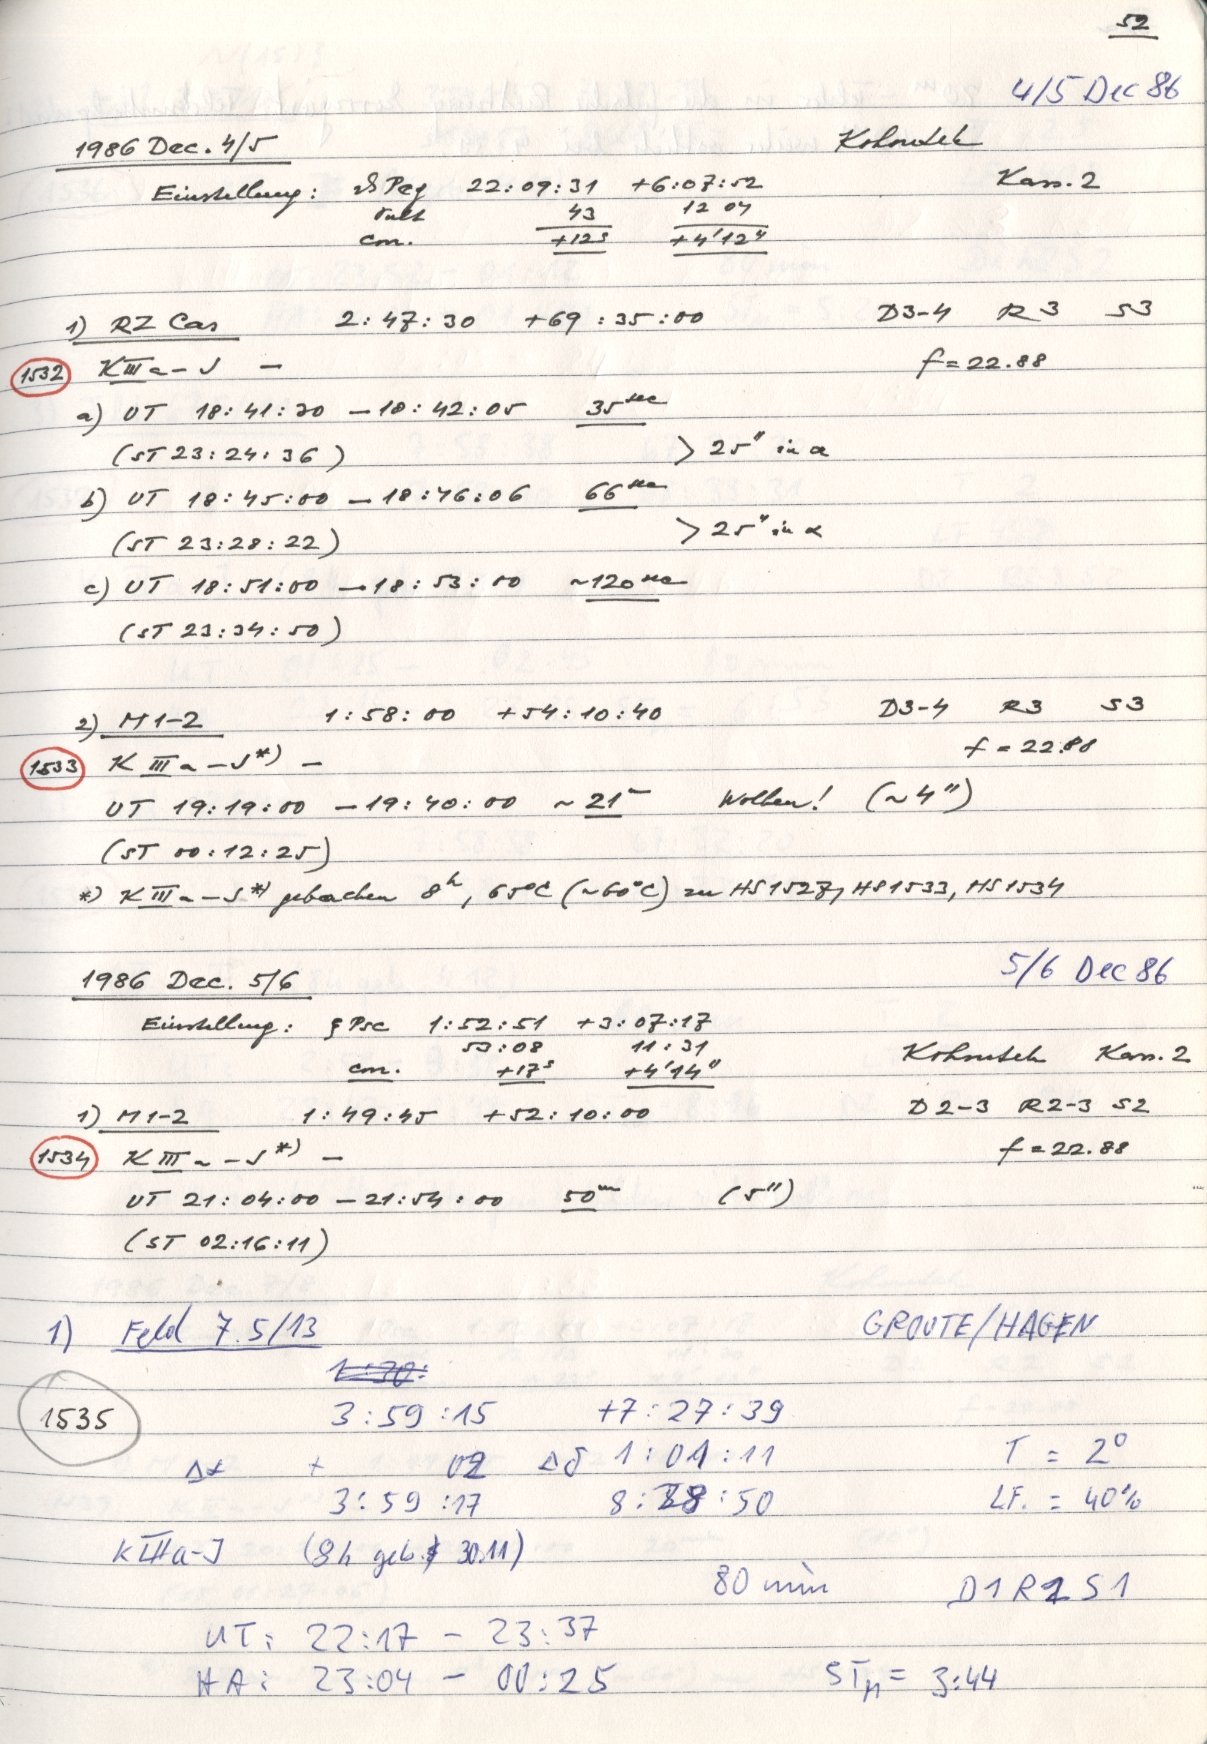 52
4/5 Dec 86
1986 Dec. 4/5 Kohoutek
Einstellung: ϑ Peg 22:09:31 +6:07:52 Kass. 2
43 12 04
corr. +12s +4'12"
1) RZ Cas 2:47:30 +69:35:00 D3-4 R3 S3
1532 KIIIa-J — f=22.88
a) UT 18:41:30 — 18:42:05 35sec
(ST 23:24:36) > 25" in α
b) UT 18:45:00 — 18:46:06 66sec
(ST 23:28:22) > 25" in α
c) UT 18:51:00 — 18:53:00 ~120sec
(ST 23:34:50)
2) M1-2 1:58:00 +54:10:40 D3-4 R3 S3
1533 KIIIa-J*) — f=22.88
UT 19:19:00 — 19:40:00 ~21m Wolken! (~4")
(ST 00:12:25)
*) KIIIa-J*) gebacken 8h, 65°C (~60°C) zu HS1527, HS1533, HS1534
5/6 Dec 86
1986 Dec. 5/6
Einstellung: ξ Psc 1:52:51 +3:07:17
53:08 11:31 Kohoutek Kass. 2
corr. +17s +4'14"
1) M1-2 1:49:45 +52:10:00 D2-3 R2-3 S2
1534 KIIIa-J*) — f=22.88
UT 21:04:00 — 21:54:00 50m (5")
(ST 02:16:11)
1) Feld 7.5/13 GROOTE/HAGEN
1:30:
1535 3:59:15 +7:27:39
Δα + 02 Δδ 1:01:11 T = 2°
3:59:17 8:28:50 LF. = 40%
KIIIa-J (8h geb. 30.11)
80 min D1 R2 S1
UT: 22:17 - 23:37
HA: 23:04 - 00:25 STM = 3:44